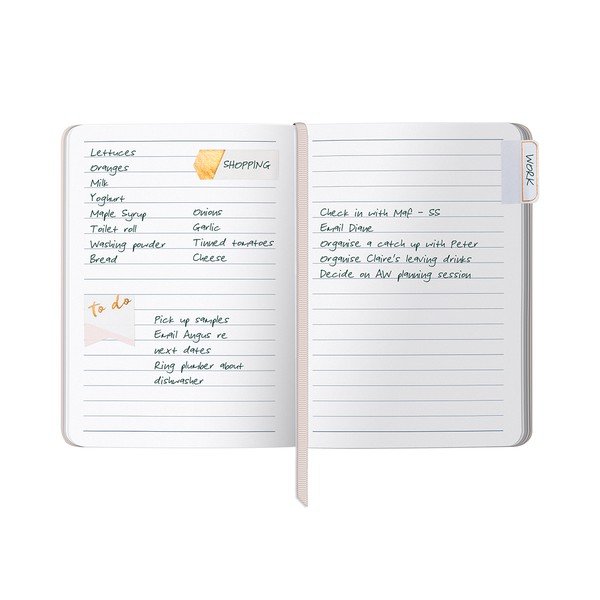 SHOPPING
Lettuces
Oranges
Milk
Yoghurt
Maple Syrup
Toilet roll
Washing powder
Bread
Onions
Garlic
Tinned tomatoes
Cheese
to do
Pick up samples
Email Angus re
next dates
Ring plumber about
dishwasher
WORK
Check in with Maf - SS
Email Diane
Organise a catch up with Peter
Organise Claire's leaving drinks
Decide on AW planning session